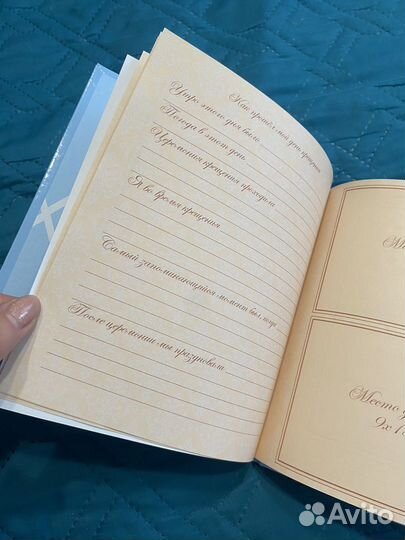 Как прошёл мой день крещения
Утро этого дня было
Погода в этот день
Церемония крещения проходила
Я во время крещения
Самый запоминающийся момент был, когда
После церемонии мы праздновали
Место
9х1
Avito